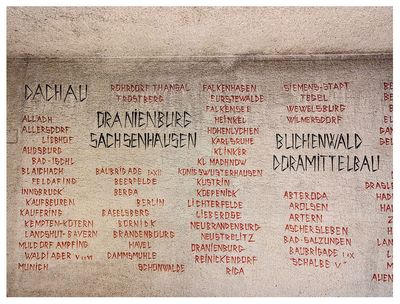 DACHAU
ALLACH
ALLERSDORF
LIEDHOF
AUGSBURG
BAD-ISCHL
BLAICHACH
FELDAFING
INNSBRUCK
KAUFBEUREN
KAUFERING
KEMPTEN-KOTERN
LANDSHUT-BAYERN
MULLDORF AMPFING
WALDLAGER V u VI
MUNICH
ROHRDORF THANSAL
TROSTBERG
ORANIENBURG
SACHSENHAUSEN
BAUBRIGADE I-XII
BEERFELDE
BERGA
BERLIN
BABELSBERG
BORNICK
BRANDENBOURG
HAVEL
DAMMSMUHLE
SCHONWALDE
FALKENHAGEN
FURSTEWALDE
FALKENSEE
HEINKEL
HOHENLYCHEN
KARLSRUHE
KLINKER
KL MACHNOW
KONIGSWUSTERHAUSEN
KUSTRIN
KOPENICK
LICHTERFELDE
LIEBEROSE
NEUBRANDENBURG
NEUSTRELITZ
ORANIENBURG
REINICKENDORF
RIGA
SIEMENS-STADT
TEGEL
WEWELSBURG
WILMERSDORF
BUCHENWALD
DORAMITTELBAU
ABTERODA
AROLSEN
ARTERN
ASCHERSLEBEN
BAD-SALZUNGEN
BAUBRIGADE I-X
SCHALBE V